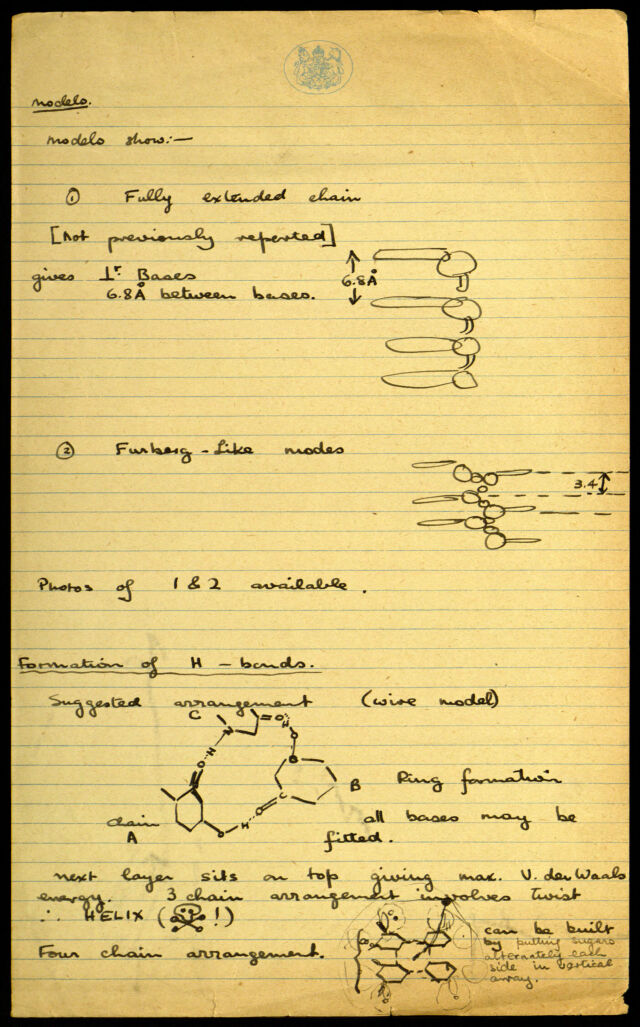 Models.
Models show:—
① Fully extended chain
[Not previously reported]
gives ⊥r Bases
6.8Å between bases.
6.8Å
② Furberg-like modes
3.4
Photos of 1 & 2 available.
Formation of H-bonds.
Suggested arrangement (wire model)
C
N
O
H
O
H
O
C
B
Ring formation
chain
A
O H O
all bases may be
fitted.
next layer sits on top giving max. V. der Waals
energy. 3 chain arrangement involves twist
∴ HELIX (☠!)
Four chain arrangement.
can be built
by putting sugars
alternately each
side in vertical
array.